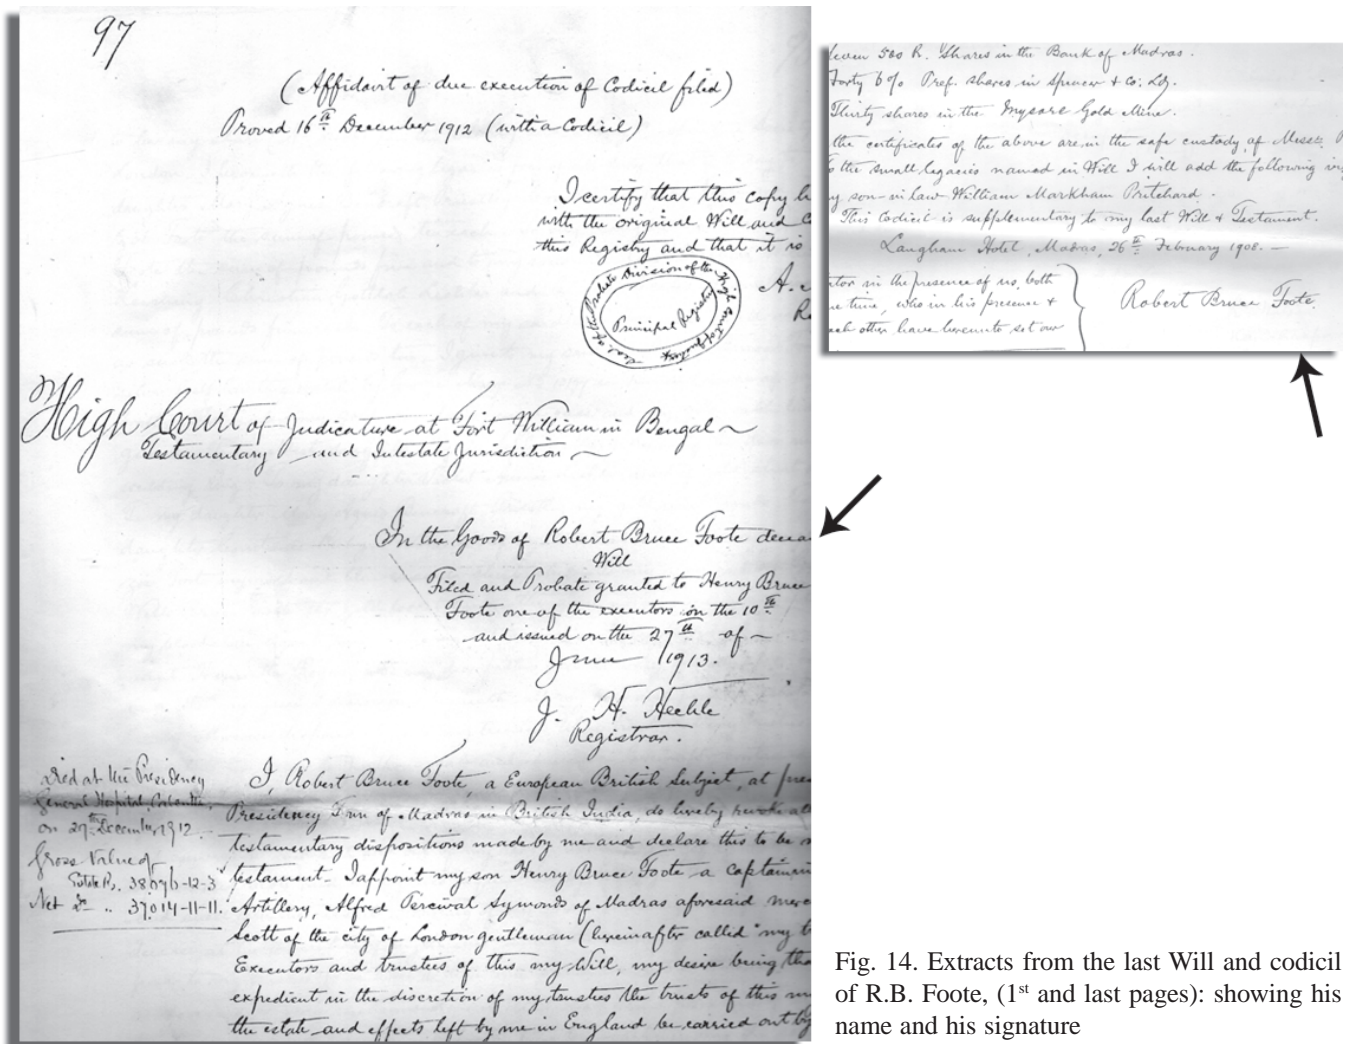 97
(Affidavit of due execution of Codicil filed)
Proved 16th December 1912 (with a Codicil)
I certify that this copy h
with the original Will and C
this Registry and that it is
A.
R
Seal of the Probate Division of the High Court of Justice
Principal Registry
High Court of Judicature at Fort William in Bengal
Testamentary and Intestate Jurisdiction
In the Goods of Robert Bruce Foote decea
Will
Filed and Probate granted to Henry Bruce
Foote one of the executors on the 10th
and issued on the 27th of
June 1913.
J. H. Hechle
Registrar.
Died at the Presidency
General Hospital, Calcutta
on 29th December 1912
Gross Value of
Estate Rs. 38076-12-3
Net Do .. 37014-11-11.
I, Robert Bruce Foote, a European British Subject, at pre
Presidency Town of Madras in British India, do hereby revoke al
testamentary dispositions made by me and declare this to be m
testament. I appoint my son Henry Bruce Foote a captain in
Artillery, Alfred Percival Symonds of Madras aforesaid merc
Scott of the city of London gentleman (hereinafter called "my t
Executors and trustees of this my Will, my desire being tha
expedient in the discretion of my trustees the trusts of this m
the estate and effects left by me in England be carried out by
leven 500 R. Shares in the Bank of Madras.
Forty 6% Pref. shares in Spencer & Co: Ld.
Thirty shares in the Mysore Gold Mine.
the certificates of the above are in the safe custody of Messrs. P
the small legacies named in Will I will add the following
y son-in-law William Markham Pritchard.
This Codicil is supplementary to my last Will & Testament.
Langham Hotel, Madras, 26th February 1908.
tor in the presence of us both
e time, who in his presence &
ach other have hereunto set our
Robert Bruce Foote
Fig. 14. Extracts from the last Will and codicil
of R.B. Foote, (1st and last pages): showing his
name and his signature